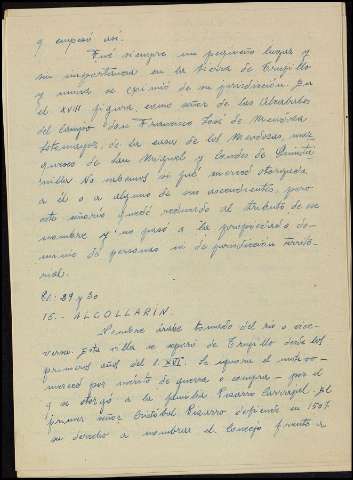 y empezó así.
Fué siempre un pequeño lugar y
sin importancia en la tierra de Trujillo
y nunca se eximió de su jurisdicción. En
el XVIII figura como señor de las Alcabalas
del Campo don Francisco José de Mendoza
Sotomayor, de la casa de los Mendozas, mar
queses de San Miguel y Condes de Quinta
nilla. No sabemos si fué merced otorgada
a él o a alguno de sus ascendientes, pero
este señorío quedó reducido al tributo de su
nombre y no pasó a la propiedad o do-
minio de personas ni de jurisdicción territo
rial.
29 y 30
15.- ALCOLLARIN.
Nombre árabe tomado del río o
Esta villa se separó de Trujillo desde los
primeros años del s. XVI. Se ignora el
merced por mérito de guerra o compra - por el
se otorgó a la familia Pizarro Carvajal. El
primer señor Cristóbal Pizarro defiende en 1507
su derecho a nombrar el Concejo frente a